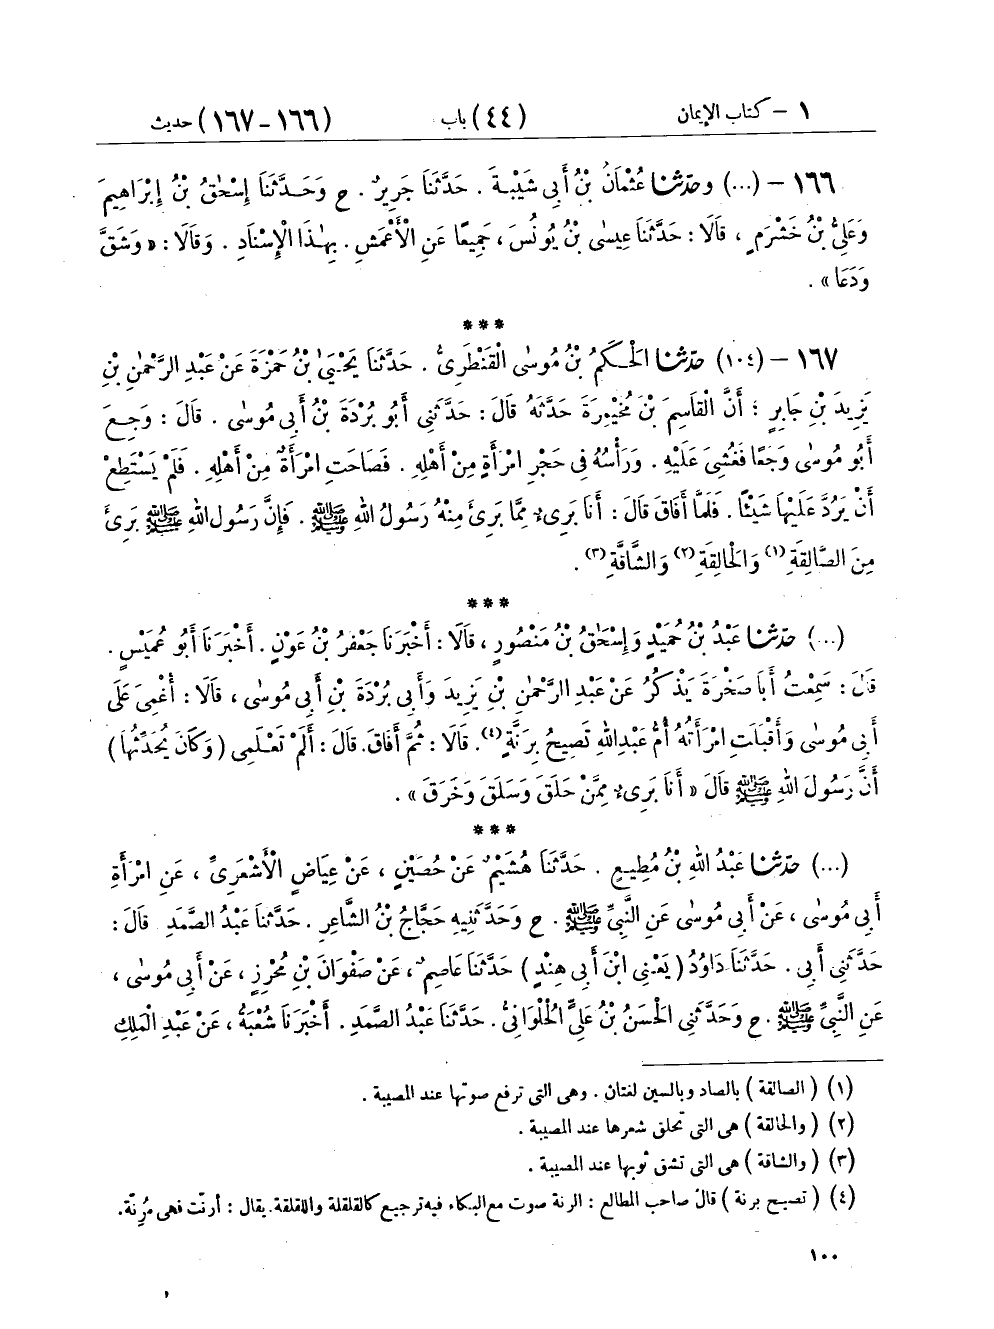 ١ – كتاب الإيمان (٤٤) باب (١٦٦-١٦٧) حديث
١٦٦ – (...) وحدّثنا عُثْمَانُ بْنُ أَبِي شَيْبَةَ . حَدَّثَنَا جَرِيرٌ . ح وَحَدَّثَنَا إِسْحٰقُ بْنُ إِبْرَاهِيمَ
وَعَلِيُّ بْنُ خَشْرَمٍ ، قَالَا : حَدَّثَنَا عِيسَى بْنُ يُونُسَ ، جَمِيعًا عَنِ الْأَعْمَشِ . بِهٰذَا الْإِسْنَادِ . وَقَالَا : « وَشَقَّ
وَدَعَا » .
***
١٦٧ – (١٠٤) حدّثنا الْحَكَمُ بْنُ مُوسَى الْقَنْطَرِيُّ . حَدَّثَنَا يَحْيَىٰ بْنُ حَمْزَةَ عَنْ عَبْدِ الرَّحْمٰنِ بْنِ
يَزِيدَ بْنِ جَابِرٍ ؛ أَنَّ الْقَاسِمَ بْنَ مُخَيْمِرَةَ حَدَّثَهُ قَالَ : حَدَّثَنِي أَبُو بُرْدَةَ بْنُ أَبِي مُوسَىٰ . قَالَ : وَجِعَ
أَبُو مُوسَىٰ وَجَعًا فَغُشِيَ عَلَيْهِ . وَرَأْسُهُ فِي حَجْرِ امْرَأَةٍ مِنْ أَهْلِهِ . فَصَاحَتِ امْرَأَةٌ مِنْ أَهْلِهِ . فَلَمْ يَسْتَطِعْ
أَنْ يَرُدَّ عَلَيْهَا شَيْئًا . فَلَمَّا أَفَاقَ قَالَ : أَنَا بَرِىءٌ مِمَّا بَرِئَ مِنْهُ رَسُولُ اللهِ ﷺ . فَإِنَّ رَسُولَ اللهِ ﷺ بَرِئَ
مِنَ الصَّالِقَةِ (١) وَالْحَالِقَةِ (٢) وَالشَّاقَّةِ (٣) .
***
(...) حدّثنا عَبْدُ بْنُ حُمَيْدٍ وَإِسْحَاقُ بْنُ مَنْصُورٍ ، قَالَا : أَخْبَرَنَا جَعْفَرُ بْنُ عَوْنٍ . أَخْبَرَنَا أَبُو عُمَيْسٍ .
قَالَ : سَمِعْتُ أَبَا صَخْرَةَ يَذْكُرُ عَنْ عَبْدِ الرَّحْمٰنِ بْنِ يَزِيدَ وَأَبِي بُرْدَةَ بْنِ أَبِي مُوسَىٰ ، قَالَا : أُغْمِيَ عَلَى
أَبِي مُوسَىٰ وَأَقْبَلَتِ امْرَأَتُهُ أُمُّ عَبْدِ اللهِ تَصِيحُ بِرَنَّةٍ (٤) . قَالَا : ثُمَّ أَفَاقَ. قَالَ : أَلَمْ تَعْلَمِي (وَكَانَ يُحَدِّثُهَا)
أَنَّ رَسُولَ اللهِ ﷺ قَالَ « أَنَا بَرِىءٌ مِمَّنْ حَلَقَ وَسَلَقَ وَخَرَقَ » .
***
(...) حدّثنا عَبْدُ اللهِ بْنُ مُطِيعٍ . حَدَّثَنَا هُشَيْمٌ عَنْ حُصَيْنٍ ، عَنْ عِيَاضٍ الْأَشْعَرِيِّ ، عَنِ امْرَأَةِ
أَبِي مُوسَىٰ ، عَنْ أَبِي مُوسَىٰ عَنِ النَّبِيِّ ﷺ . ح وَحَدَّثَنِيهِ حَجَّاجُ بْنُ الشَّاعِرِ . حَدَّثَنَا عَبْدُ الصَّمَدِ قَالَ :
حَدَّثَنِي أَبِي . حَدَّثَنَا دَاوُدُ (يَعْنِي ابْنَ أَبِي هِنْدٍ) حَدَّثَنَا عَاصِمٌ ، عَنْ صَفْوَانَ بْنِ مُحْرِزٍ ، عَنْ أَبِي مُوسَىٰ ،
عَنِ النَّبِيِّ ﷺ . ح وَحَدَّثَنِي الْحَسَنُ بْنُ عَلِيٍّ الْحُلْوَانِيُّ . حَدَّثَنَا عَبْدُ الصَّمَدِ . أَخْبَرَنَا شُعْبَةُ ، عَنْ عَبْدِ الْمَلِكِ
(١) (الصالقة) بالصاد وبالسين لغتان . وهى التى ترفع صوتها عند المصيبة .
(٢) (والحالقة) هى التى تحلق شعرها عند المصيبة .
(٣) (والشاقة) هى التى تشق ثوبها عند المصيبة .
(٤) (تصيح برنة) قال صاحب المطالع : الرنة صوت مع البكاء فيه ترجيع كالقلقلة واللقلقة. يقال : أرنّت فهى مُرِنّة.
١٠٠